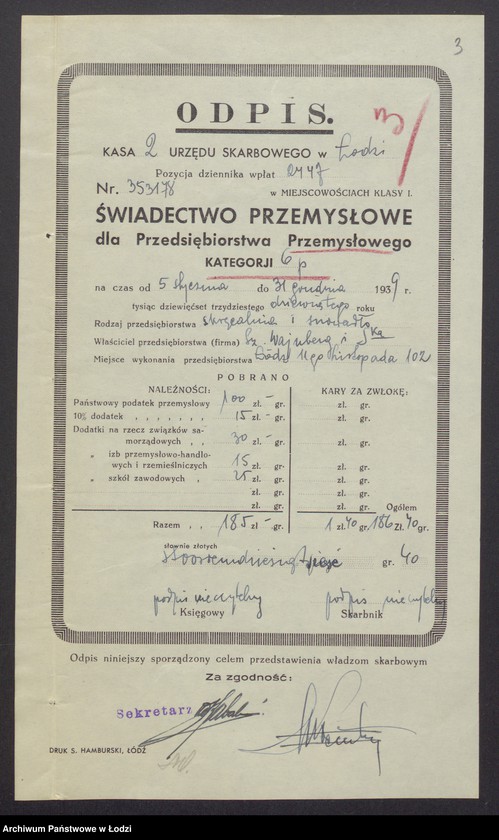 3
ODPIS.
KASA 2 URZĘDU SKARBOWEGO w Łodzi
Pozycja dziennika wpłat 2447
Nr. 353178 w MIEJSCOWOŚCIACH KLASY I.
ŚWIADECTWO PRZEMYSŁOWE
dla Przedsiębiorstwa Przemysłowego
KATEGORJI 6 p
na czas od 5 stycznia do 31 grudnia 1939 r
tysiąc dziewięćset trzydziestego dziewiątego roku
Rodzaj przedsiębiorstwa skręcalnia i snowadło
Właściciel przedsiębiorstwa (firma) Sz. Wajnberg i S-ka
Miejsce wykonania przedsiębiorstwa Łódź 11go Listopada 102
POBRANO
NALEŻNOŚCI: KARY ZA ZWŁOKĘ:
Państwowy podatek przemysłowy 100 zł. – gr. zł. gr.
10% dodatek , , , , , , , 15 zł. – gr. zł. gr.
Dodatki na rzecz związków sa-
morządowych , , 30 zł. – gr. zł. gr.
„ izb przemysłowo-handlo-
wych i rzemieślniczych 15 zł. gr. zł. gr.
„ szkół zawodowych , 25 zł. gr. zł. gr.
zł. gr. zł. gr.
zł. gr. zł. gr. Ogółem
Razem , , 185 zł – gr. 1 zł. 40 gr. 186 zł. 40 gr.
słownie złotych
stoosiemdziesiąt sześć gr. 40
podpis nieczytelny podpis nieczytelny
Księgowy Skarbnik
Odpis niniejszy sporządzony celem przedstawienia władzom skarbowym
Za zgodność:
Sekretarz
DRUK S. HAMBURSKI, ŁÓDŹ
Archiwum Państwowe w Łodzi